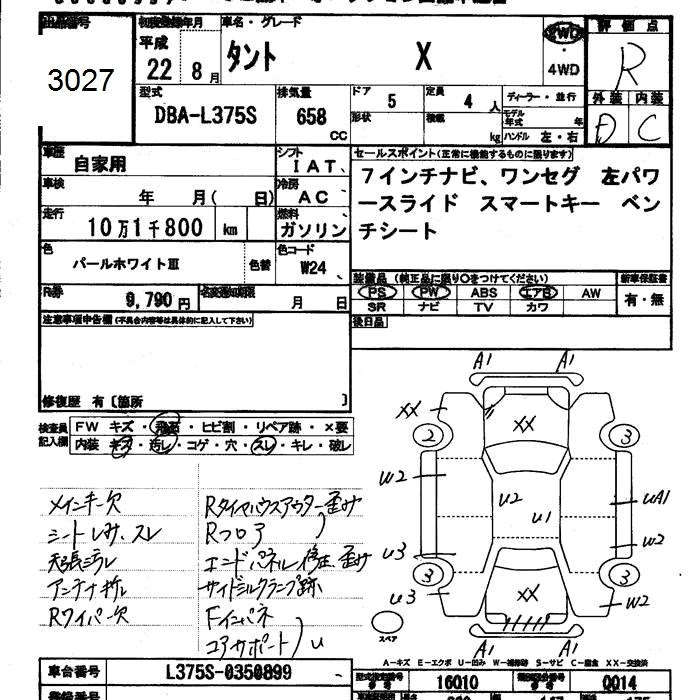 3027
初度登録年月
平成
22 8月
車名・グレード
タント X
2WD
・
4WD
評価点
R
型式
DBA-L375S
排気量
658
CC
ドア
5
定員
4 人
ディーラー・並行
形状
積載
kg
モデル年式
年
ハンドル 左・右
外装 内装
D C
車歴
自家用
シフト
IAT、
セールスポイント(正常に機能するものに限ります)
7インチナビ、ワンセグ 左パワ
ースライド スマートキー ベン
チシート
車検
年 月( 日)
冷房
AC
走行
10万1千800 km
燃料
ガソリン
色
パールホワイトⅢ
色替
色コード
W24
装備品 (純正品に限り○をつけてください)
新車保証書
PS PW ABS エアB AW
有・無
SR ナビ TV カワ
R券
9,790円
名変通知期限
月 日
後日品
注意事項申告欄(不具合内容等は具体的に記入して下さい)
修復歴 有〔箇所 〕
検査員記入欄
FW キズ・飛石・ヒビ割・リペア跡・×要
内装 キズ・汚レ・コゲ・穴・スレ・キレ・破レ
メインキー欠
シートしみ、スレ
天張ミラレ
アンテナ折レ
Rワイパー欠
Rタイヤハウスアウター歪み
Rフロア
エンドパネル修正、歪み
サイドシルクランプ跡
Fインパネ
コアサポート
u
A1 A1
XX XX
2 3
W2 u2 u1 uA1
W2
u3
3 3
u3 XX W2
A1 A1
スペア
A-キズ E-エクボ U-凹み W-補修跡 S-サビ C-腐食 XX-交換済
車台番号
L375S-0350899
型式指定番号
16010
類別区分番号
0014